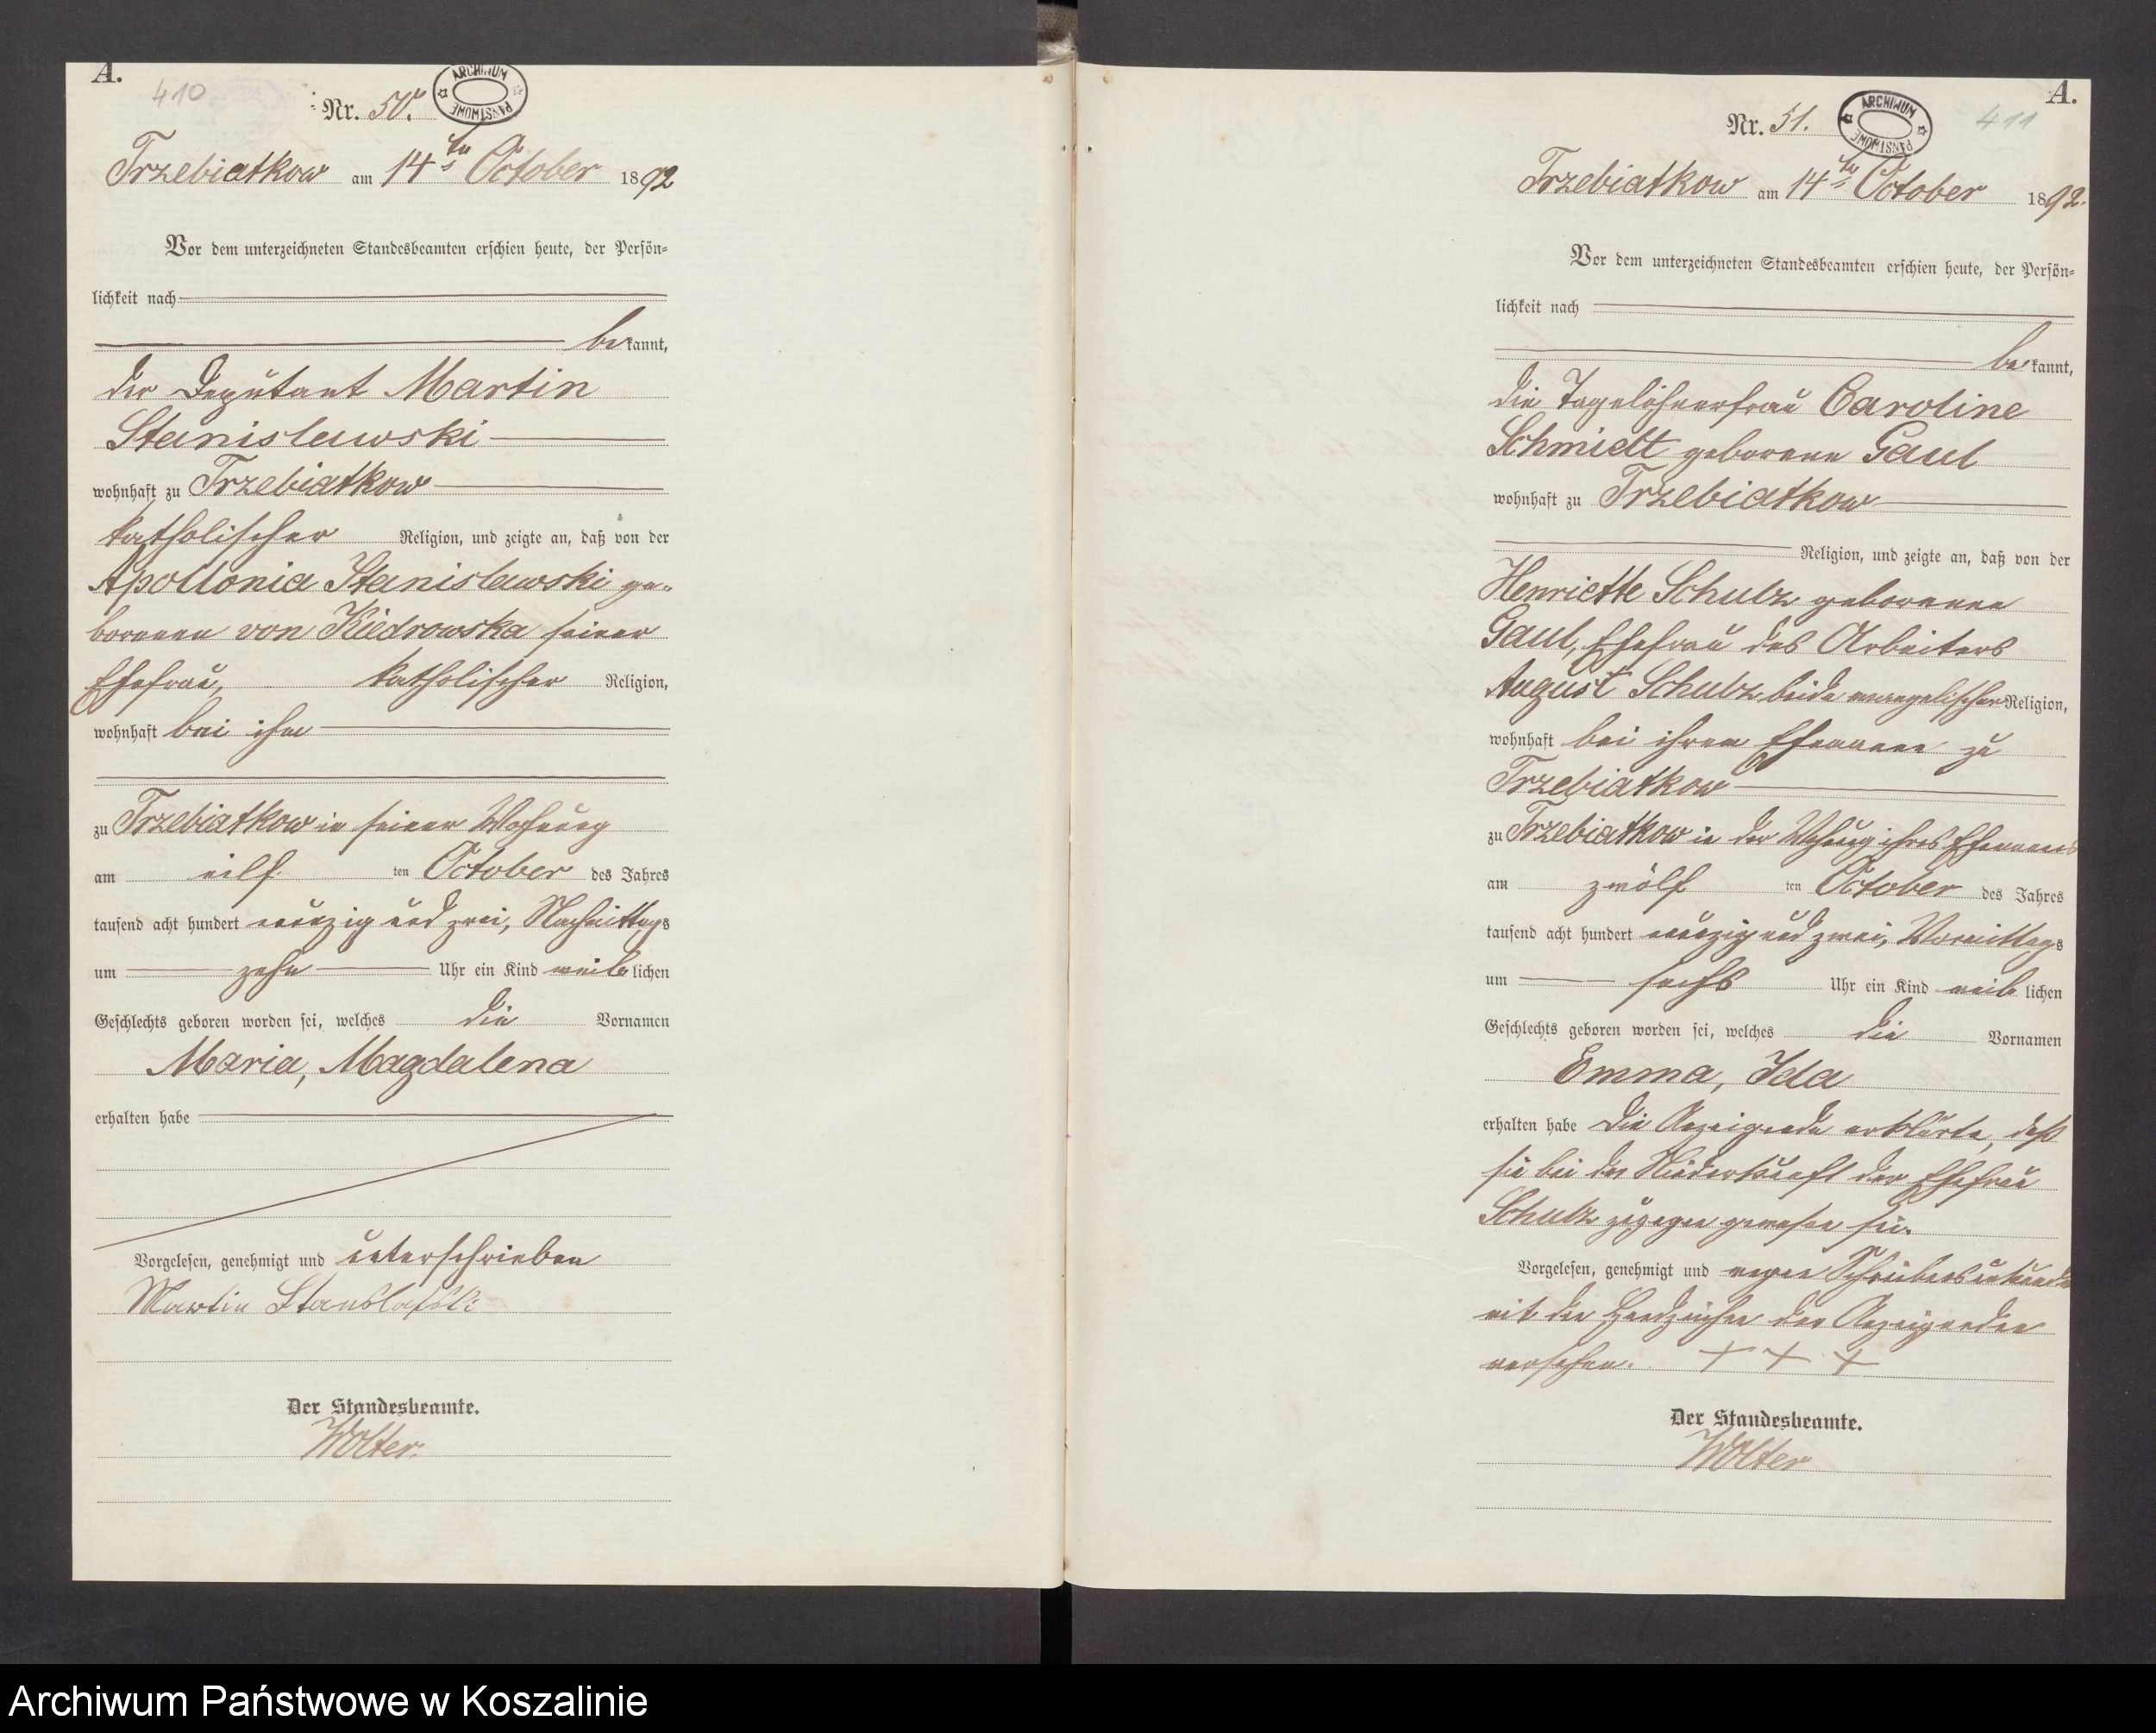 A.
410
Nr. 50.
ARCHIWUM PAŃSTWOWE
Trzebiatkow am 14ten October 1892
Vor dem unterzeichneten Standesbeamten erschien heute, der Persön-
lichkeit nach
bekannt,
der Deputant Martin
Stanislawski
wohnhaft zu Trzebiatkow
katholischer Religion, und zeigte an, daß von der
Apollonia Stanislawski ge-
borenen von Kiedrowska seiner
Ehefrau, katholischer Religion,
wohnhaft bei ihm
zu Trzebiatkow in seiner Wohnung
am eilf ten October des Jahres
tausend acht hundert neunzig und zwei, Nachmittags
um zehn Uhr ein Kind weiblichen
Geschlechts geboren worden sei, welches die Vornamen
Maria, Magdalena
erhalten habe
Vorgelesen, genehmigt und unterschrieben
Martin
Der Standesbeamte.
Wolter.
A.
411
Nr. 51.
ARCHIWUM PAŃSTWOWE
Trzebiatkow am 14ten October 1892.
Vor dem unterzeichneten Standesbeamten erschien heute, der Persön-
lichkeit nach
bekannt,
die Tagelöhnerfrau Caroline
Schmidt geborene Gaul
wohnhaft zu Trzebiatkow
Religion, und zeigte an, daß von der
Henriette Schulz geborenen
Gaul, Ehefrau des Arbeiters
August Schulz beide evangelischer Religion,
wohnhaft bei ihrem Ehemann zu
Trzebiatkow
zu Trzebiatkow in der Wohnung ihres Ehemannes
am zwölf ten October des Jahres
tausend acht hundert neunzig und zwei, Vormittags
um sechs Uhr ein Kind weiblichen
Geschlechts geboren worden sei, welches die Vornamen
Emma, Ida
erhalten habe Die Anzeigende erklärte, daß
sie bei der Niederkunft der Ehefrau
Schulz zugegen gewesen sei.
Vorgelesen, genehmigt und wegen Schreibensunkunde
mit den Handzeichen der Anzeigenden
versehen. + + +
Der Standesbeamte.
Wolter
Archiwum Państwowe w Koszalinie